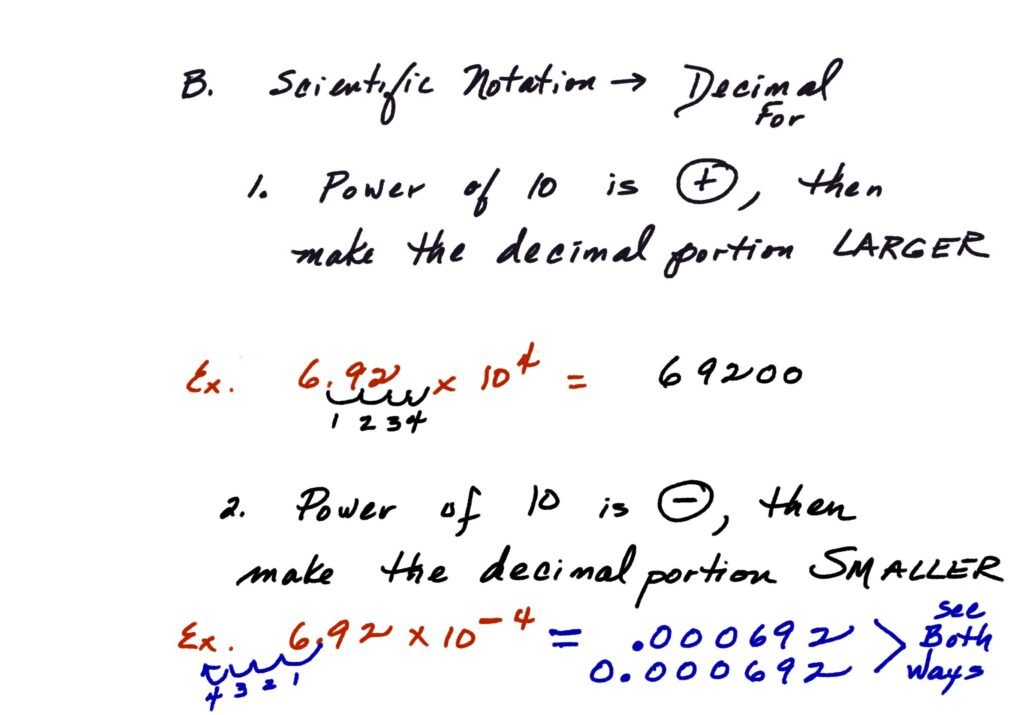 B. Scientific Notation → Decimal
For
1. Power of 10 is ⊕, then
make the decimal portion LARGER
Ex. 6.92 x 10⁴ = 69200
1 2 3 4
2. Power of 10 is ⊖, then
make the decimal portion SMALLER
Ex. 6.92 x 10⁻⁴ = .000692 > see Both ways
0.000692
4 3 2 1